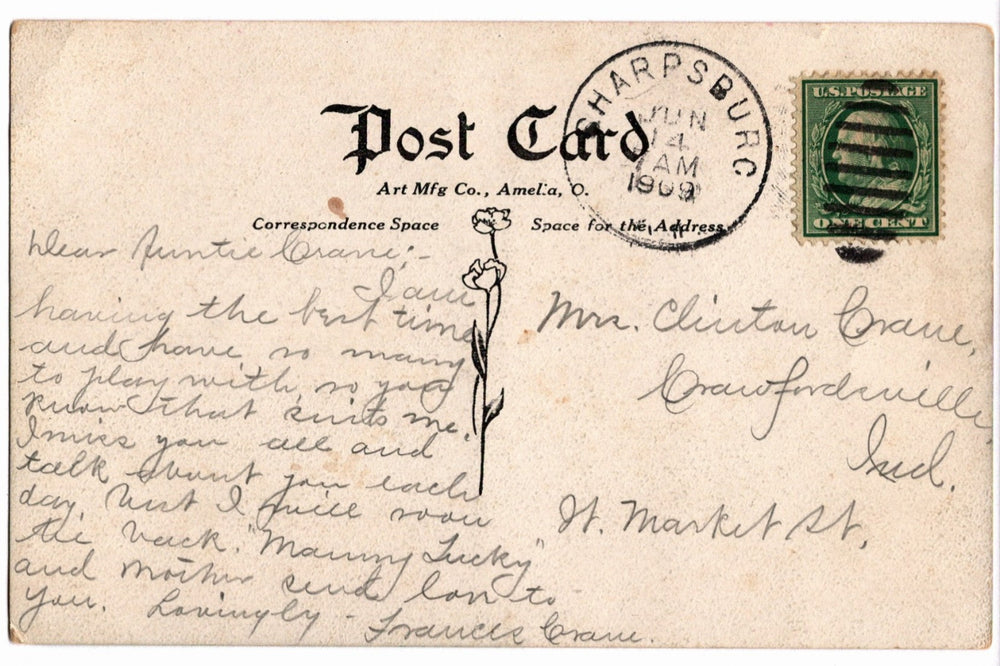 Post Card
Art Mfg Co., Amelia, O.
Correspondence Space
Space for the Address
SHARPSBURG
JUN
14
AM
1909
U.S. POSTAGE
ONE CENT
Dear Auntie Crane,-
I am
having the best time
and have so many
to play with, so you
know that suits me.
I miss you all and
talk about you each
day, but I will soon
be back. "Mammy Lucky"
and mother send love to
you. Lovingly -
Frances Crane.
Mrs. Clinton Crane,
Crawfordsville,
Ind.
Market St.